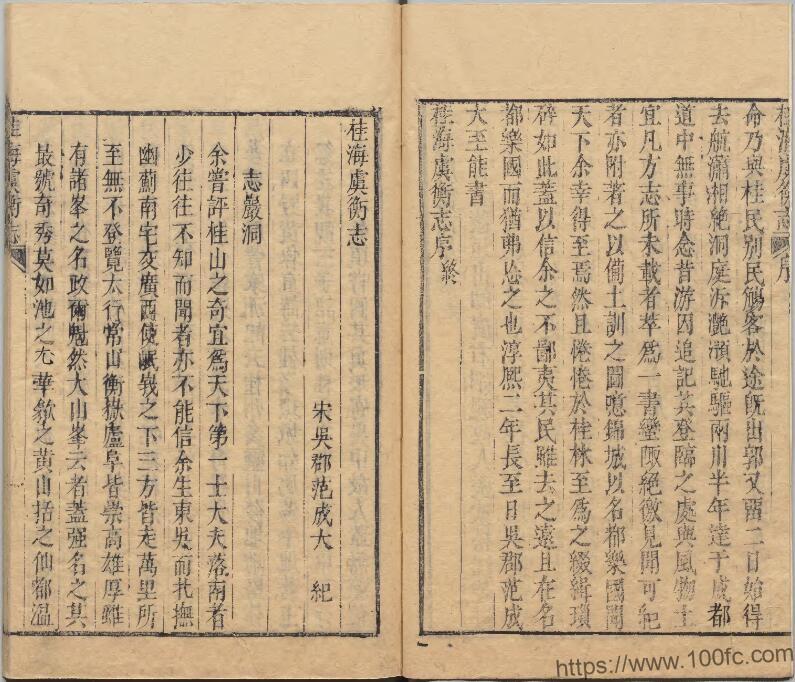 桂海虞衡志 序
命乃與桂民別民觴客於途旣出郭又留二日始得
去航瀟湘絕洞庭泝灩澦馳驅兩川半年達于成都
道中無事時念昔游因追記其登臨之處與風物土
宜凡方志所未載者萃爲一書蠻陬絕徼見聞可紀
者亦附著之以備土訓之圖噫錦城以名都樂國聞
天下余幸得至焉然且惓惓於桂林至爲之綴緝瑣
碎如此蓋以信余之不鄙夷其民雖去之遠且在名
都樂國而猶弗忘之也淳熙二年長至日吳郡范成
大至能書
桂海虞衡志序終
桂海虞衡志
宋吳郡范成大 紀
志巖洞
余嘗評桂山之奇宜爲天下第一士大夫落南者
少往往不知而聞者亦不能信余生東吳而北撫
幽薊南宅交廣西使岷峩之下三方皆走萬里所
至無不登覽太行常山衡嶽廬阜皆崇高雄厚雖
有諸峯之名政爾魁然大山峯云者蓋强名之其
最號奇秀莫如池之九華歙之黃山括之仙都溫
桂海虞衡志
https://www.100fc.com